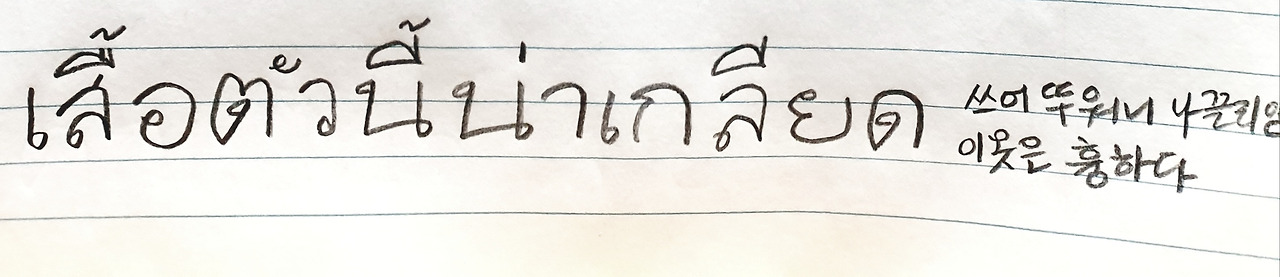 เสื้อตัวนี้น่าเกลียด 쓰어 뚜워니 나끌리얃
이옷은 흉하다